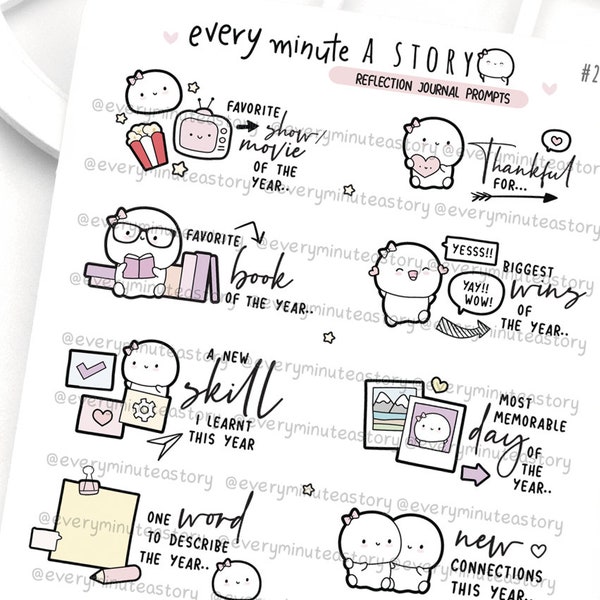 every minute A STORY
REFLECTION JOURNAL PROMPTS
#2
FAVORITE
show/
movie
OF THE
YEAR..
Thankful
FOR...
FAVORITE
book
OF THE YEAR..
YESSS!!
YAY!!
WOW!
BIGGEST
wins
OF
THE YEAR..
A NEW
skill
I LEARNT
THIS YEAR
MOST
MEMORABLE
day OF
THE
YEAR..
ONE word
TO DESCRIBE
THE YEAR..
new
CONNECTIONS
THIS YEAR..
@everyminuteastory
@everyminuteastory
@everyminuteastory
@everyminuteastory
@everyminuteastory
@everyminuteastory
@everyminuteastory
@everyminuteastory
@everyminuteastory
@everyminuteastory
@everyminuteastory
@everyminuteastory